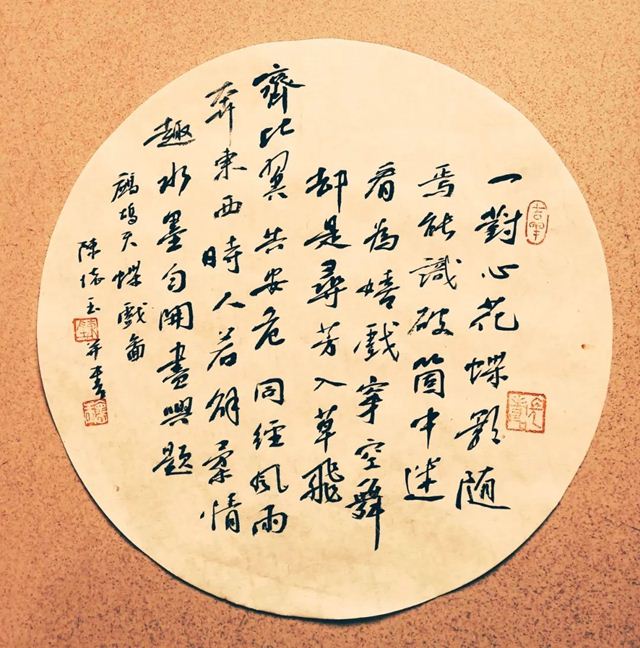 一對心花蝶影随
焉能識破箇中迷
看為嬉戲穿空舞
却是尋芳入草飛
齊比翼共安危同經風雨
奔東西時人若解柔情
趣水墨勻開盡興題
鷓鴣天蝶戲圖
陳玉并書